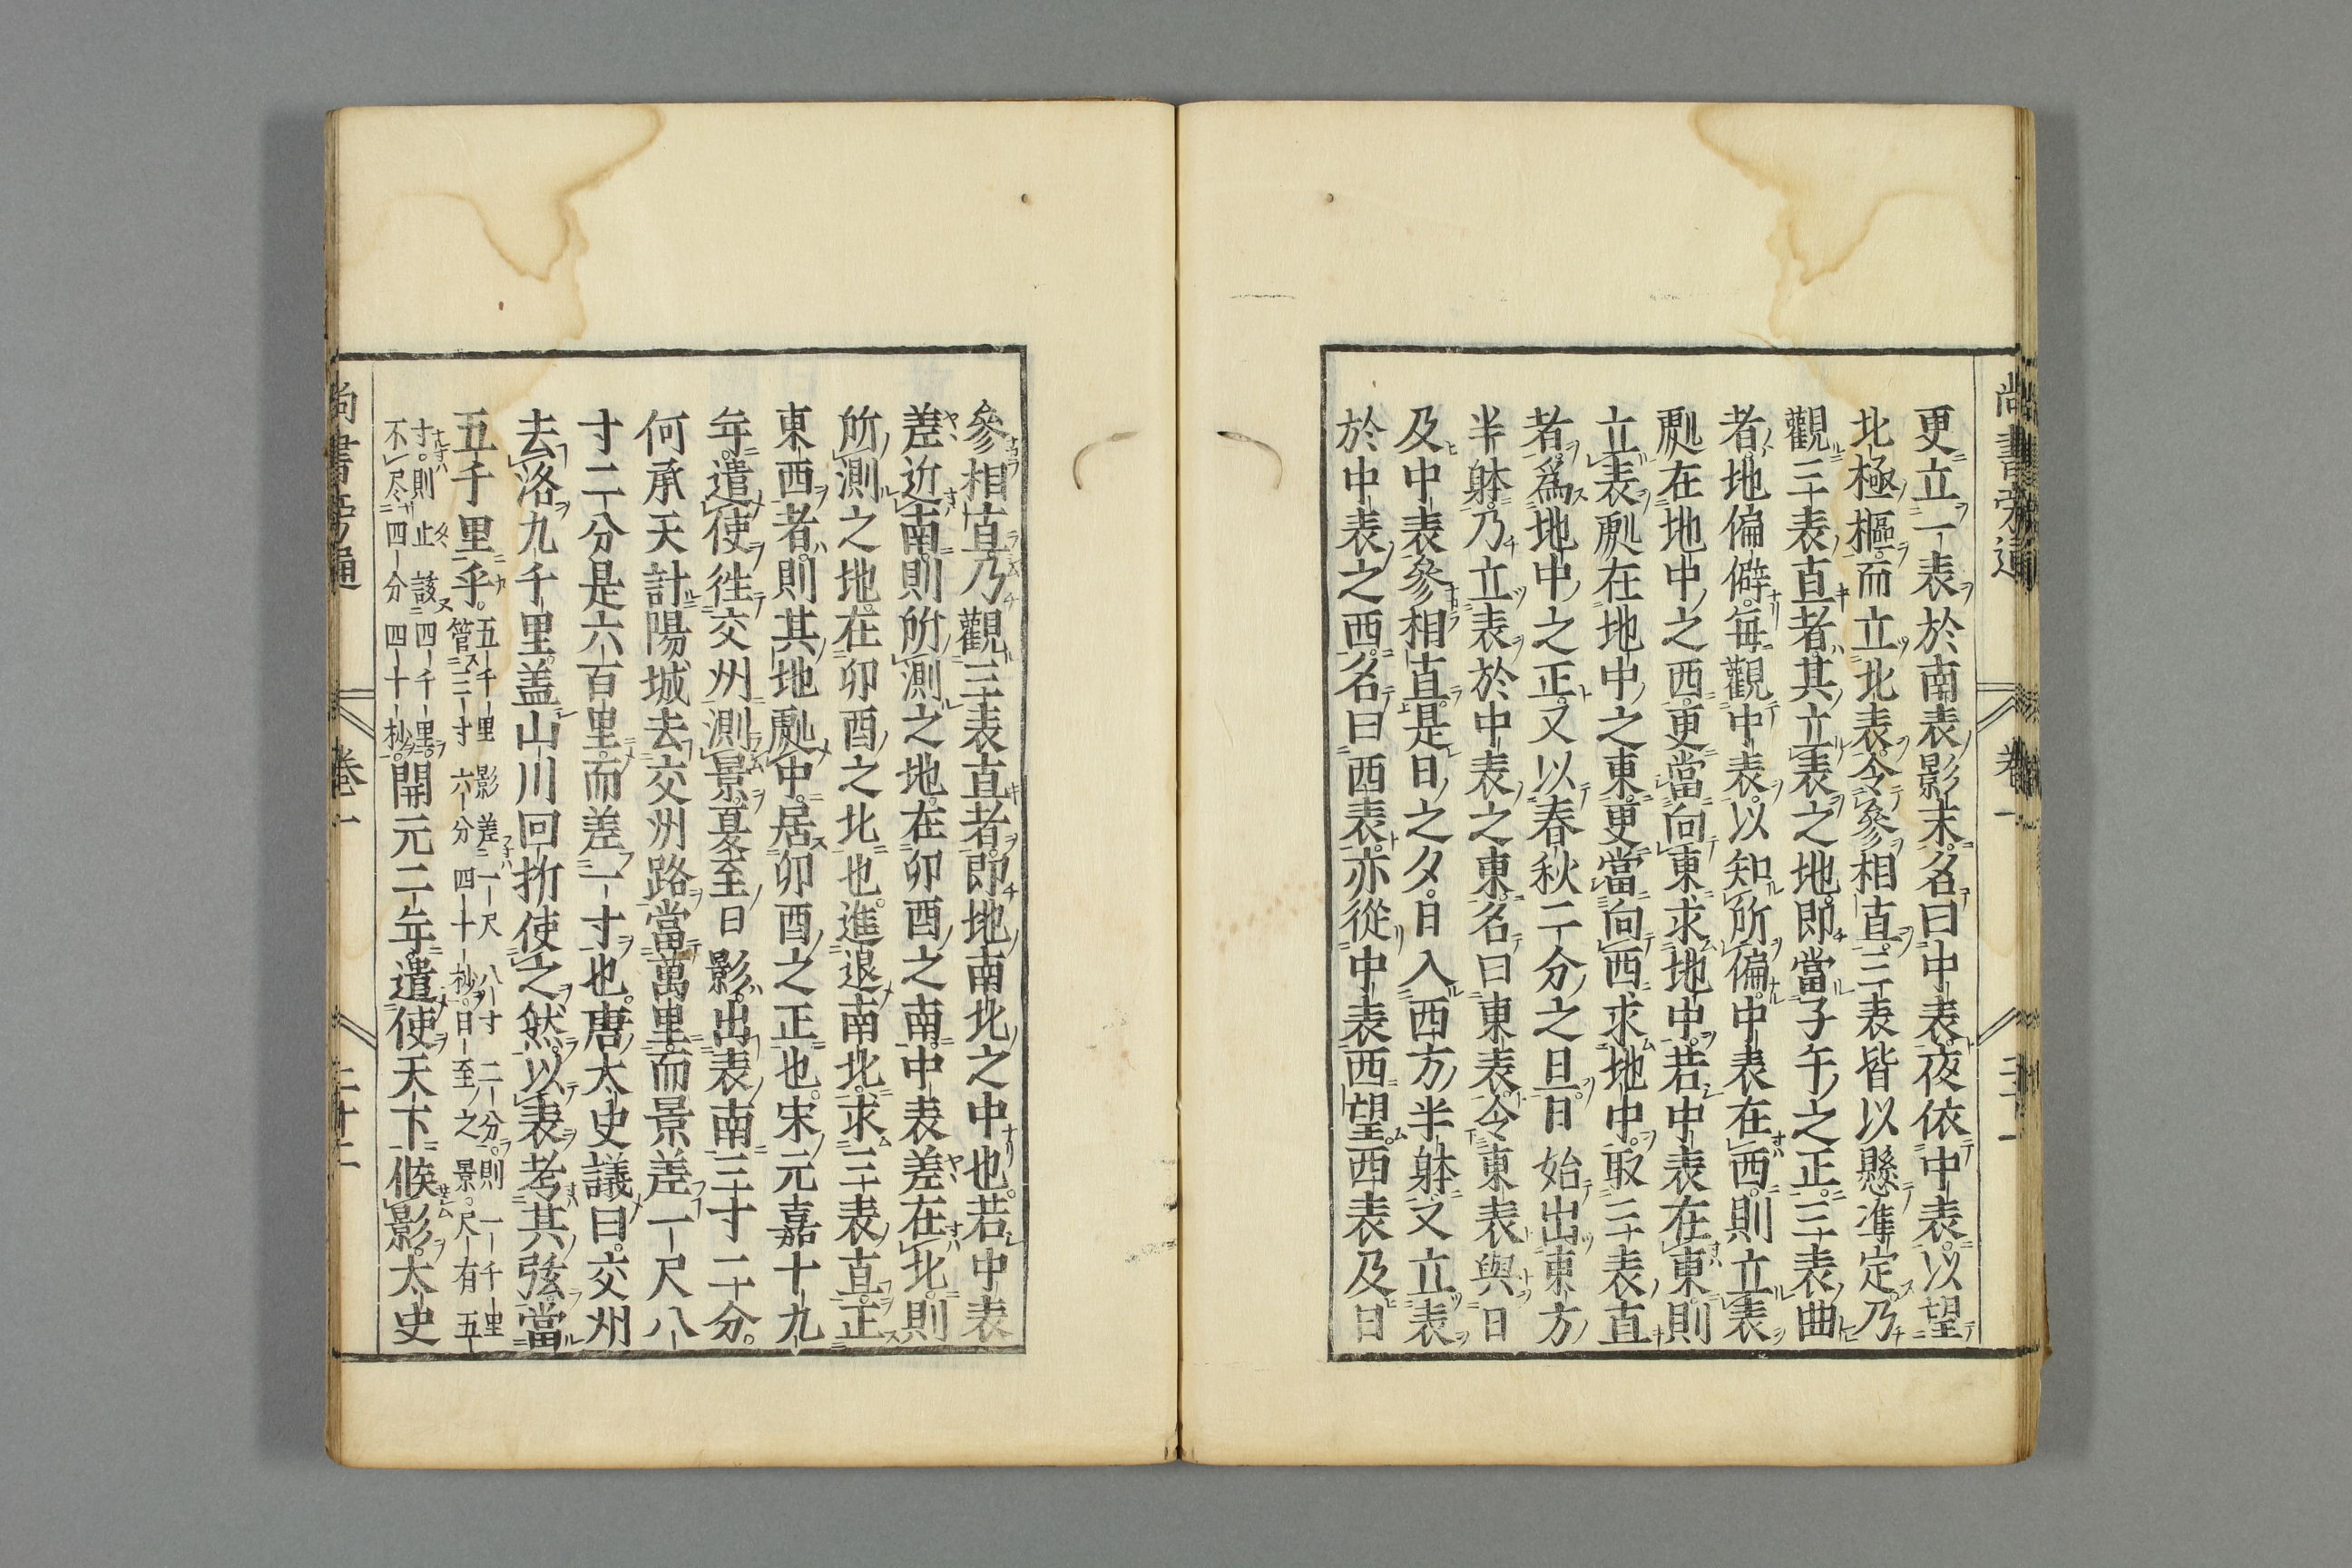 更立一表於南表影末名曰中表夜依中表以望
北極樞而立北表令參相直三表皆以懸準定乃
觀三表直者其立表之地即當子午之正三表曲
者地偏僻每觀中表以知所偏中表在西則立表
處在地中之西更當向東求地中若中表在東則
立表處在地中之東更當向西求地中取三表直
者為地中之正又以春秋二分之旦日始出東方
半躰乃立表於中表之東名曰東表令東表與日
及中表參相直是日之夕日入西方半躰又立表
於中表之西名曰西表亦從中表西望西表及日
參相直乃觀三表直者即地南北之中也若中表
差近南則所測之地在卯酉之南中表差在北則
所測之地在卯酉之北也進退南北求三表直正
東西者則其地處中居卯酉之正也宋元嘉十九
年遣使徃交州測景夏至日影出表南三寸二分
何承天計陽城去交州路當萬里而景差一尺八
寸二分是六百里而差一寸也唐太史議曰交州
去洛九千里盖山川回折使之然以表考其弦當
五千里乎五千里影差一尺八寸二分則一千里
管三寸六分四十抄日至之景尺有五
寸則止該四千里
不尽四分四十抄開元二年遣使天下候影太史
尚書旁通
卷一
二十二